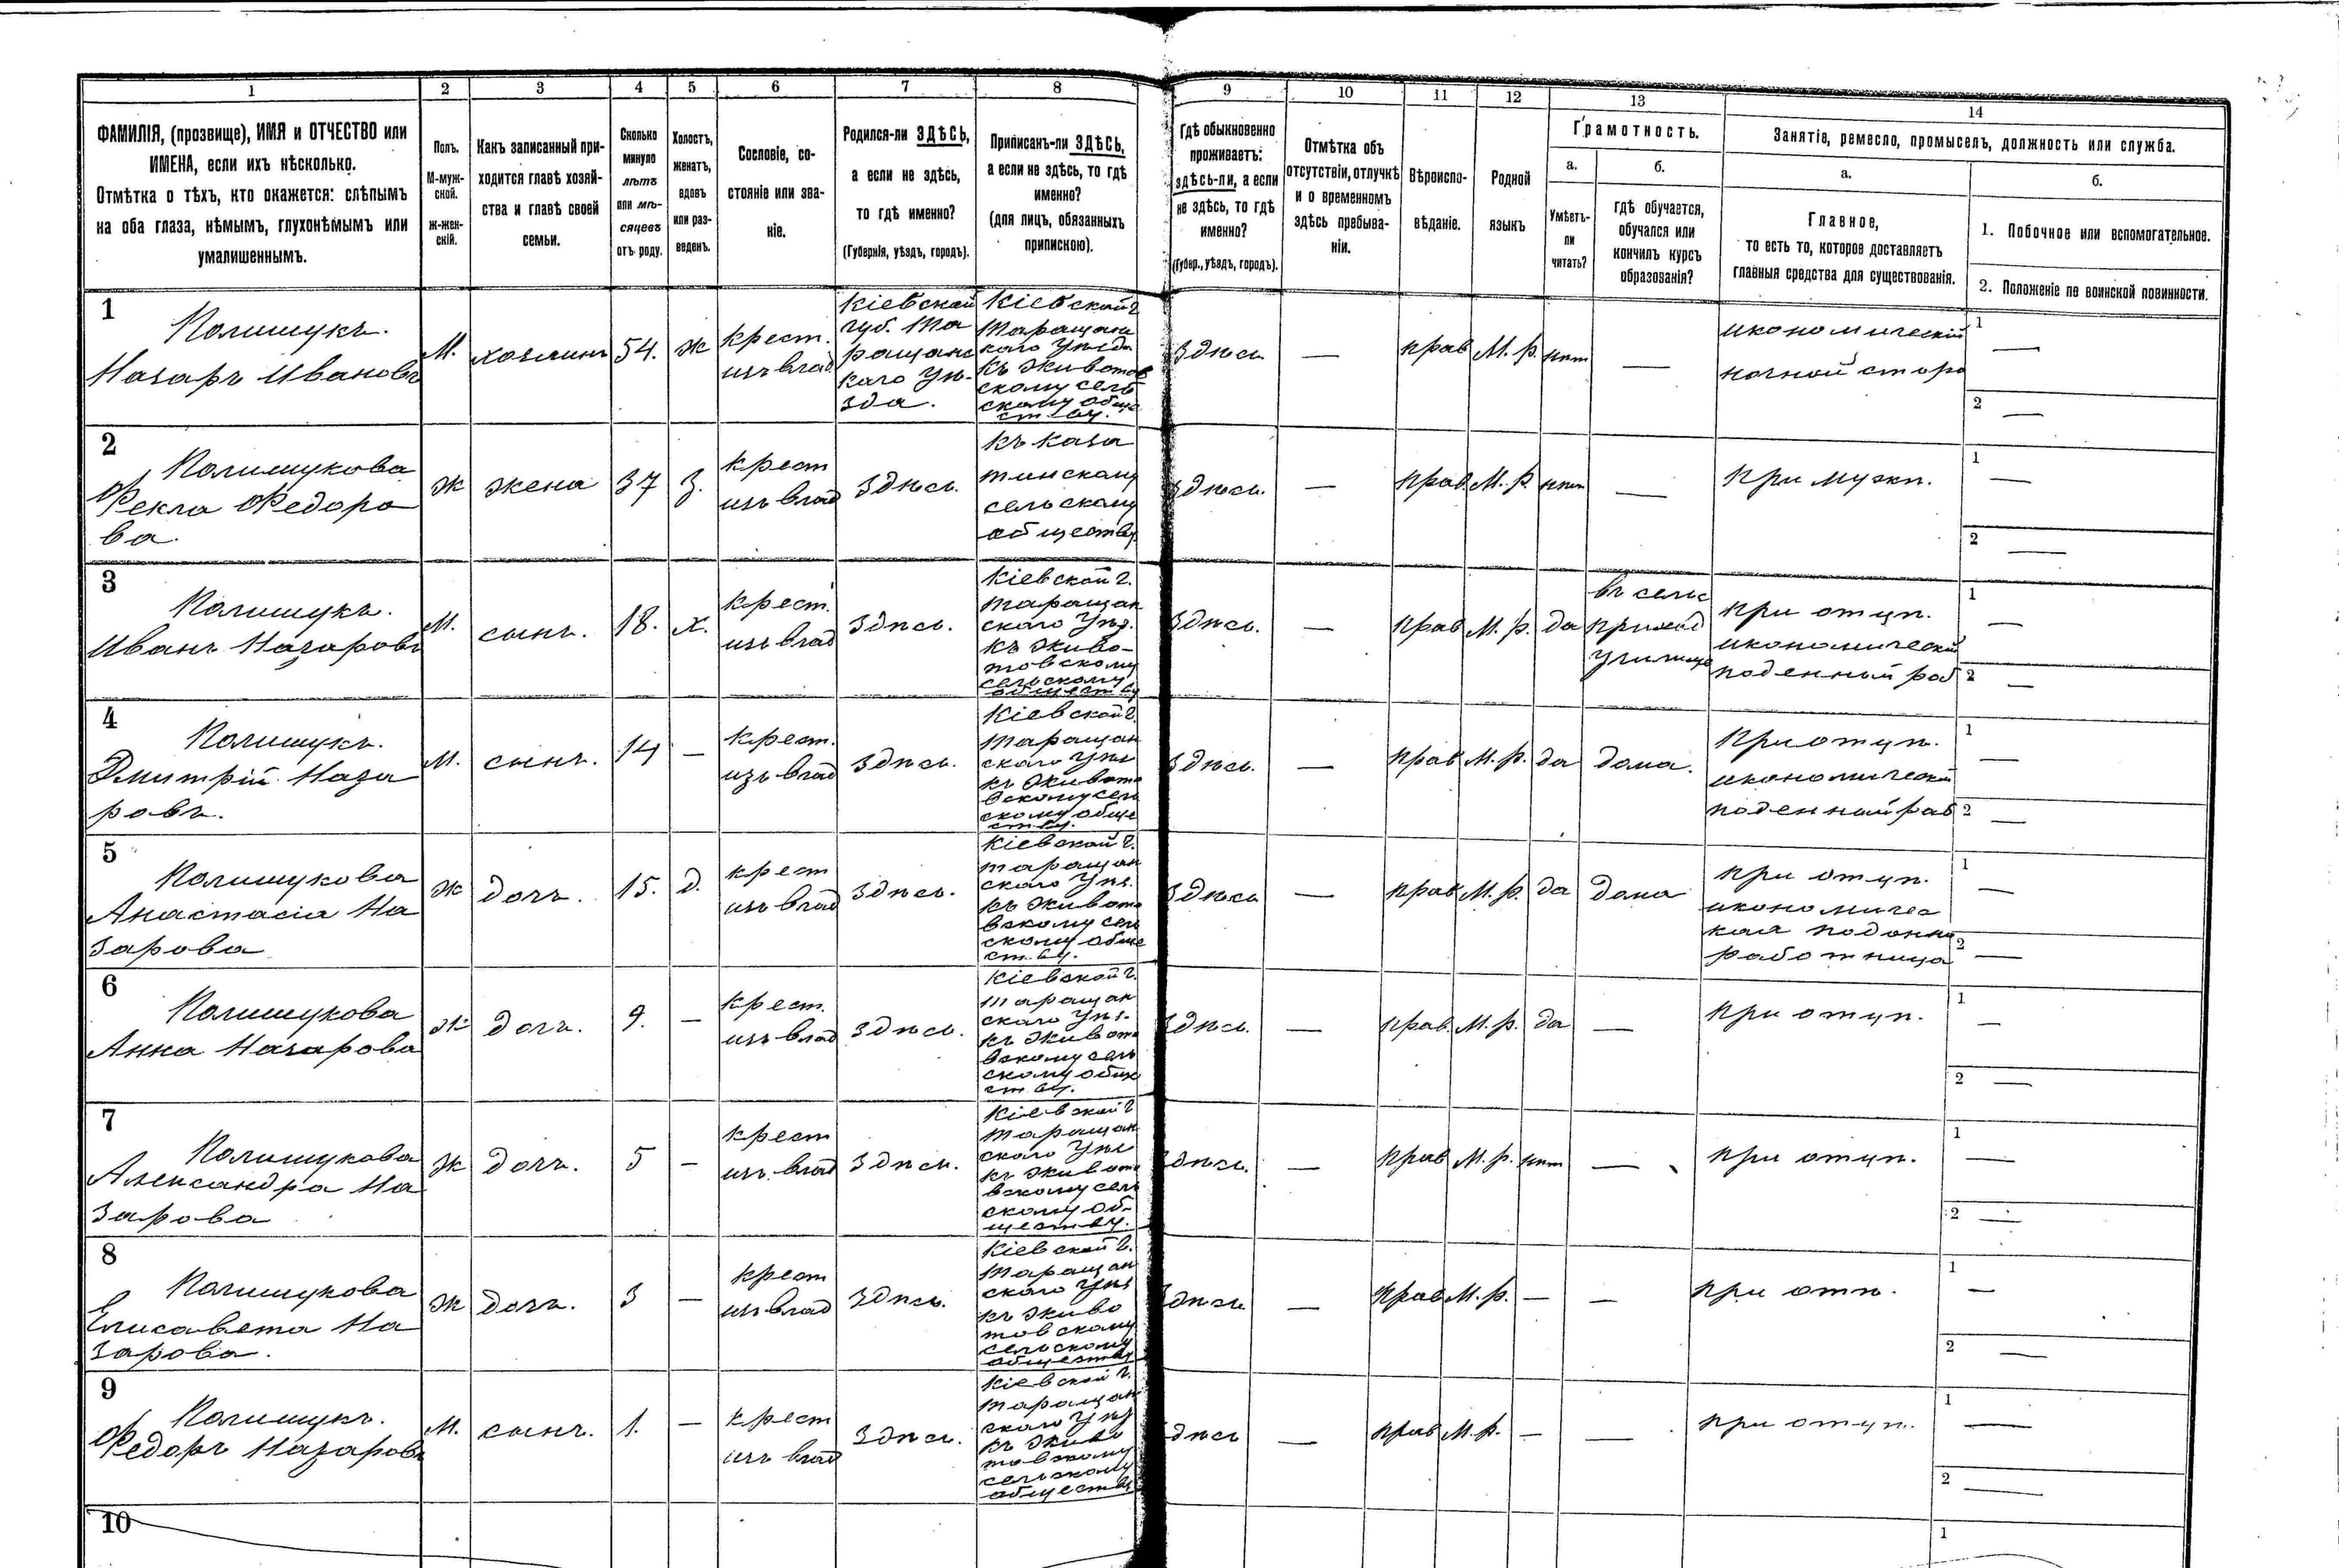 1 2 3 4 5 6 7 8 9 10 11 12 13 14
ФАМИЛІЯ, (прозвище), ИМЯ и ОТЧЕСТВО или
ИМЕНА, если ихъ нѣсколько.
Отмѣтка о тѣхъ, кто окажется: слѣпымъ
на оба глаза, нѣмымъ, глухонѣмымъ или
умалишеннымъ.
Полъ.
М-муж-
ской.
Ж-жен-
скій.
Какъ записанный при-
ходится главѣ хозяй-
ства и главѣ своей
семьи.
Сколько
минуло
лѣтъ
или мѣ-
сяцевъ
отъ роду.
Холостъ,
женатъ,
вдовъ
или раз-
веденъ.
Сословіе, со-
стояніе или зва-
ніе.
Родился-ли ЗДѢСЬ,
а если не здѣсь,
то гдѣ именно?
(Губернія, уѣздъ, городъ).
Приписанъ-ли ЗДѢСЬ,
а если не здѣсь, то гдѣ
именно?
(для лицъ, обязанныхъ
припиской).
Гдѣ обыкновенно
проживаетъ:
здѣсь-ли, а если
не здѣсь, то гдѣ
именно?
(Губер., уѣздъ, городъ).
Отмѣтка объ
отсутствіи, отлучкѣ
и о временномъ
здѣсь пребыва-
ніи.
Вѣроиспо-
вѣданіе.
Родной
языкъ
Грамотность.
а.
Умѣетъ-
ли
читать?
б.
гдѣ обучается,
обучался или
кончилъ курсъ
образованія?
Занятіе, ремесло, промыселъ, должность или служба.
а.
Главное,
то есть то, которое доставляетъ
главныя средства для существованія.
б.
1. Побочное или вспомогательное.
2. Положеніе по воинской повинности.
1
Полищукъ.
Назаръ Ивановъ
М.
хозяинъ
54.
ж
крест.
изъ влад
Кіевской
губ. Та
ращанс
каго Уѣ-
зда.
Кіевской г
Таращанс
каго Уѣзда
къ Животов
скому сель
скому обще
ству.
Здѣсь
—
прав
М. р.
нѣт
—
икономическій
ночной сторо
1 —
2 —
2
Полищукова
Фекла Федоро
ва.
ж
жена
37
З.
крест
изъ влад
Здѣсь.
къ Каза
тинскому
сельскому
обществу
Здѣсь.
—
прав.
М. р.
нѣт
—
при мужѣ.
1 —
2 —
3
Полищукъ.
Иванъ Назаровъ
М.
сынъ.
18.
х.
крест.
изъ влад
Здѣсь.
Кіевской г.
таращан
скаго Уѣз.
къ Живо-
товскому
сельскому
обществу
Здѣсь.
—
прав
М. р.
да
въ сельс
приход
училище
при отцѣ.
икономическій
поденный раб
1 —
2 —
4
Полищукъ.
Дмитрій Наза
ровъ.
М.
сынъ.
14
—
крест.
изъ влад
Здѣсь.
Кіевской г.
таращан
скаго Уѣз
къ Живото
вскому сель
скому обще
ству.
Здѣсь.
—
прав
М. р.
да
дома.
При отцѣ.
икономическій
поденный раб
1 —
2 —
5
Полищукова
Анастасія На
зарова
ж
дочь.
15.
д.
крест
изъ влад
Здѣсь.
Кіевской г.
таращан
скаго Уѣз.
къ Живото
вскому сель
скому обще
ству.
Здѣсь
—
прав
М. р.
да
дома
при отцѣ.
икономичес
кая поденна
работница
1 —
2 —
6
Полищукова
Анна Назарова
ж
дочь.
9.
—
крест.
изъ влад
Здѣсь.
Кіевской г.
таращан
скаго Уѣз.
къ Живото
вскому сель
скому обще
ству.
Здѣсь.
—
прав.
М. р.
да
—
при отцѣ.
1 —
2 —
7
Полищукова
Александра На
зарова
ж
дочь.
5
—
крест
изъ влад
Здѣсь.
Кіевской г
таращан
скаго Уѣз
къ Живото
вскому сель
скому об-
ществу.
Здѣсь.
—
прав
М. р.
нѣт
—
при отцѣ.
1 —
2 —
8
Полищукова
Елисавета На
зарова.
ж
дочь.
3
—
крест
изъ влад
Здѣсь.
Кіевской г.
таращан
скаго Уѣз
къ Живо
товскому
сельскому
обществу
Здѣсь
—
прав
М. р.
—
—
при отц.
1 —
2 —
9
Полищукъ.
Федоръ Назаровъ
М.
сынъ.
1.
—
крест
изъ влад
Здѣсь.
Кіевской г.
таращан
скаго Уѣз
къ Живо
товскому
сельскому
обществу
Здѣсь
—
прав
М. р.
—
—
при отцѣ.
1 —
2 —
10
1